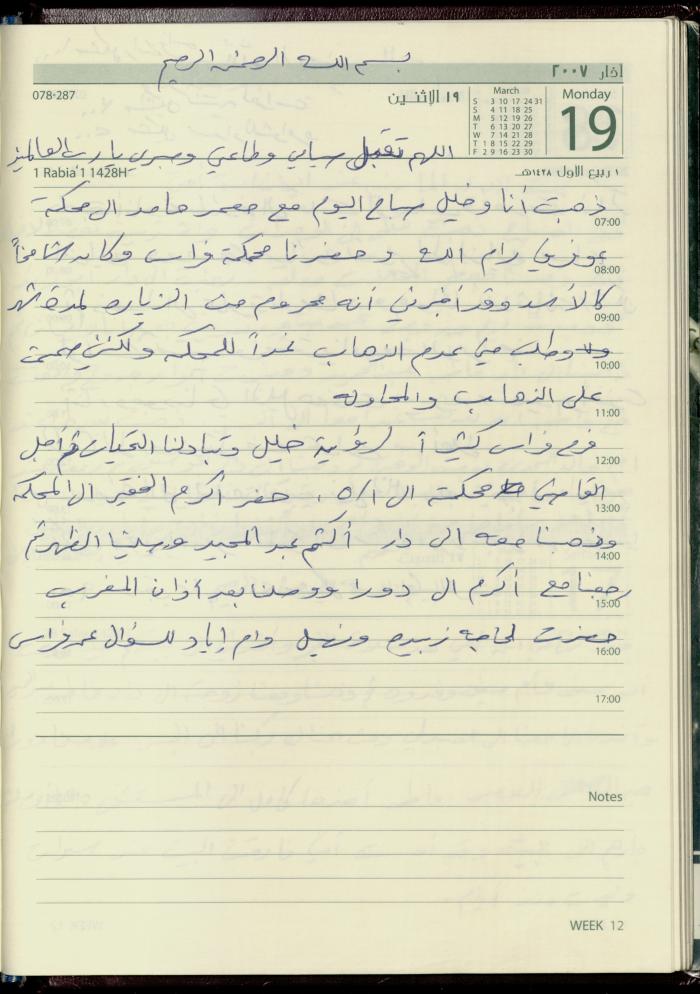 بسم الله الرحمن الرحيم
آذار ٢٠٠٧
078-287
١٩ الاثنين
March
S 3 10 17 24 31
S 4 11 18 25
M 5 12 19 26
T 6 13 20 27
W 7 14 21 28
T 1 8 15 22 29
F 2 9 16 23 30
Monday
19
اللهم تقبل صيامي وطاعتي وصبري يا رب العالمين
1 Rabia'1 1428H
١ ربيع الأول ١٤٢٨هـ
ذهبت أنا وخليل صباح اليوم مع معمر حامد ال محكمة
07:00
عوفر في رام الله وحضرنا محكمة فراس وكان شامخاً
08:00
كالأسد وقد أخبرني أنه محروم من الزيارة لمدة شهر
09:00
وطلب مني عدم الذهاب غداً للمحكمة ولكنني صممت
10:00
على الذهاب والمحاولة
11:00
فرح فراس كثيراً لرؤية خليل وتبادلنا التحيات ثم أجل
12:00
القاضي محكمته ال ٥/١ ، حضر أكرم الفقير ال المحكمة
13:00
وذهبنا معه الى دار أكثم عبد المجيد وصلينا الظهر ثم
14:00
رجعنا مع أكرم ال دورا ووصلنا بعد أذان المغرب
15:00
حضرت الحاجة زبيده ونهيل وام إياد للسؤال عن فراس
16:00
17:00
Notes
WEEK 12